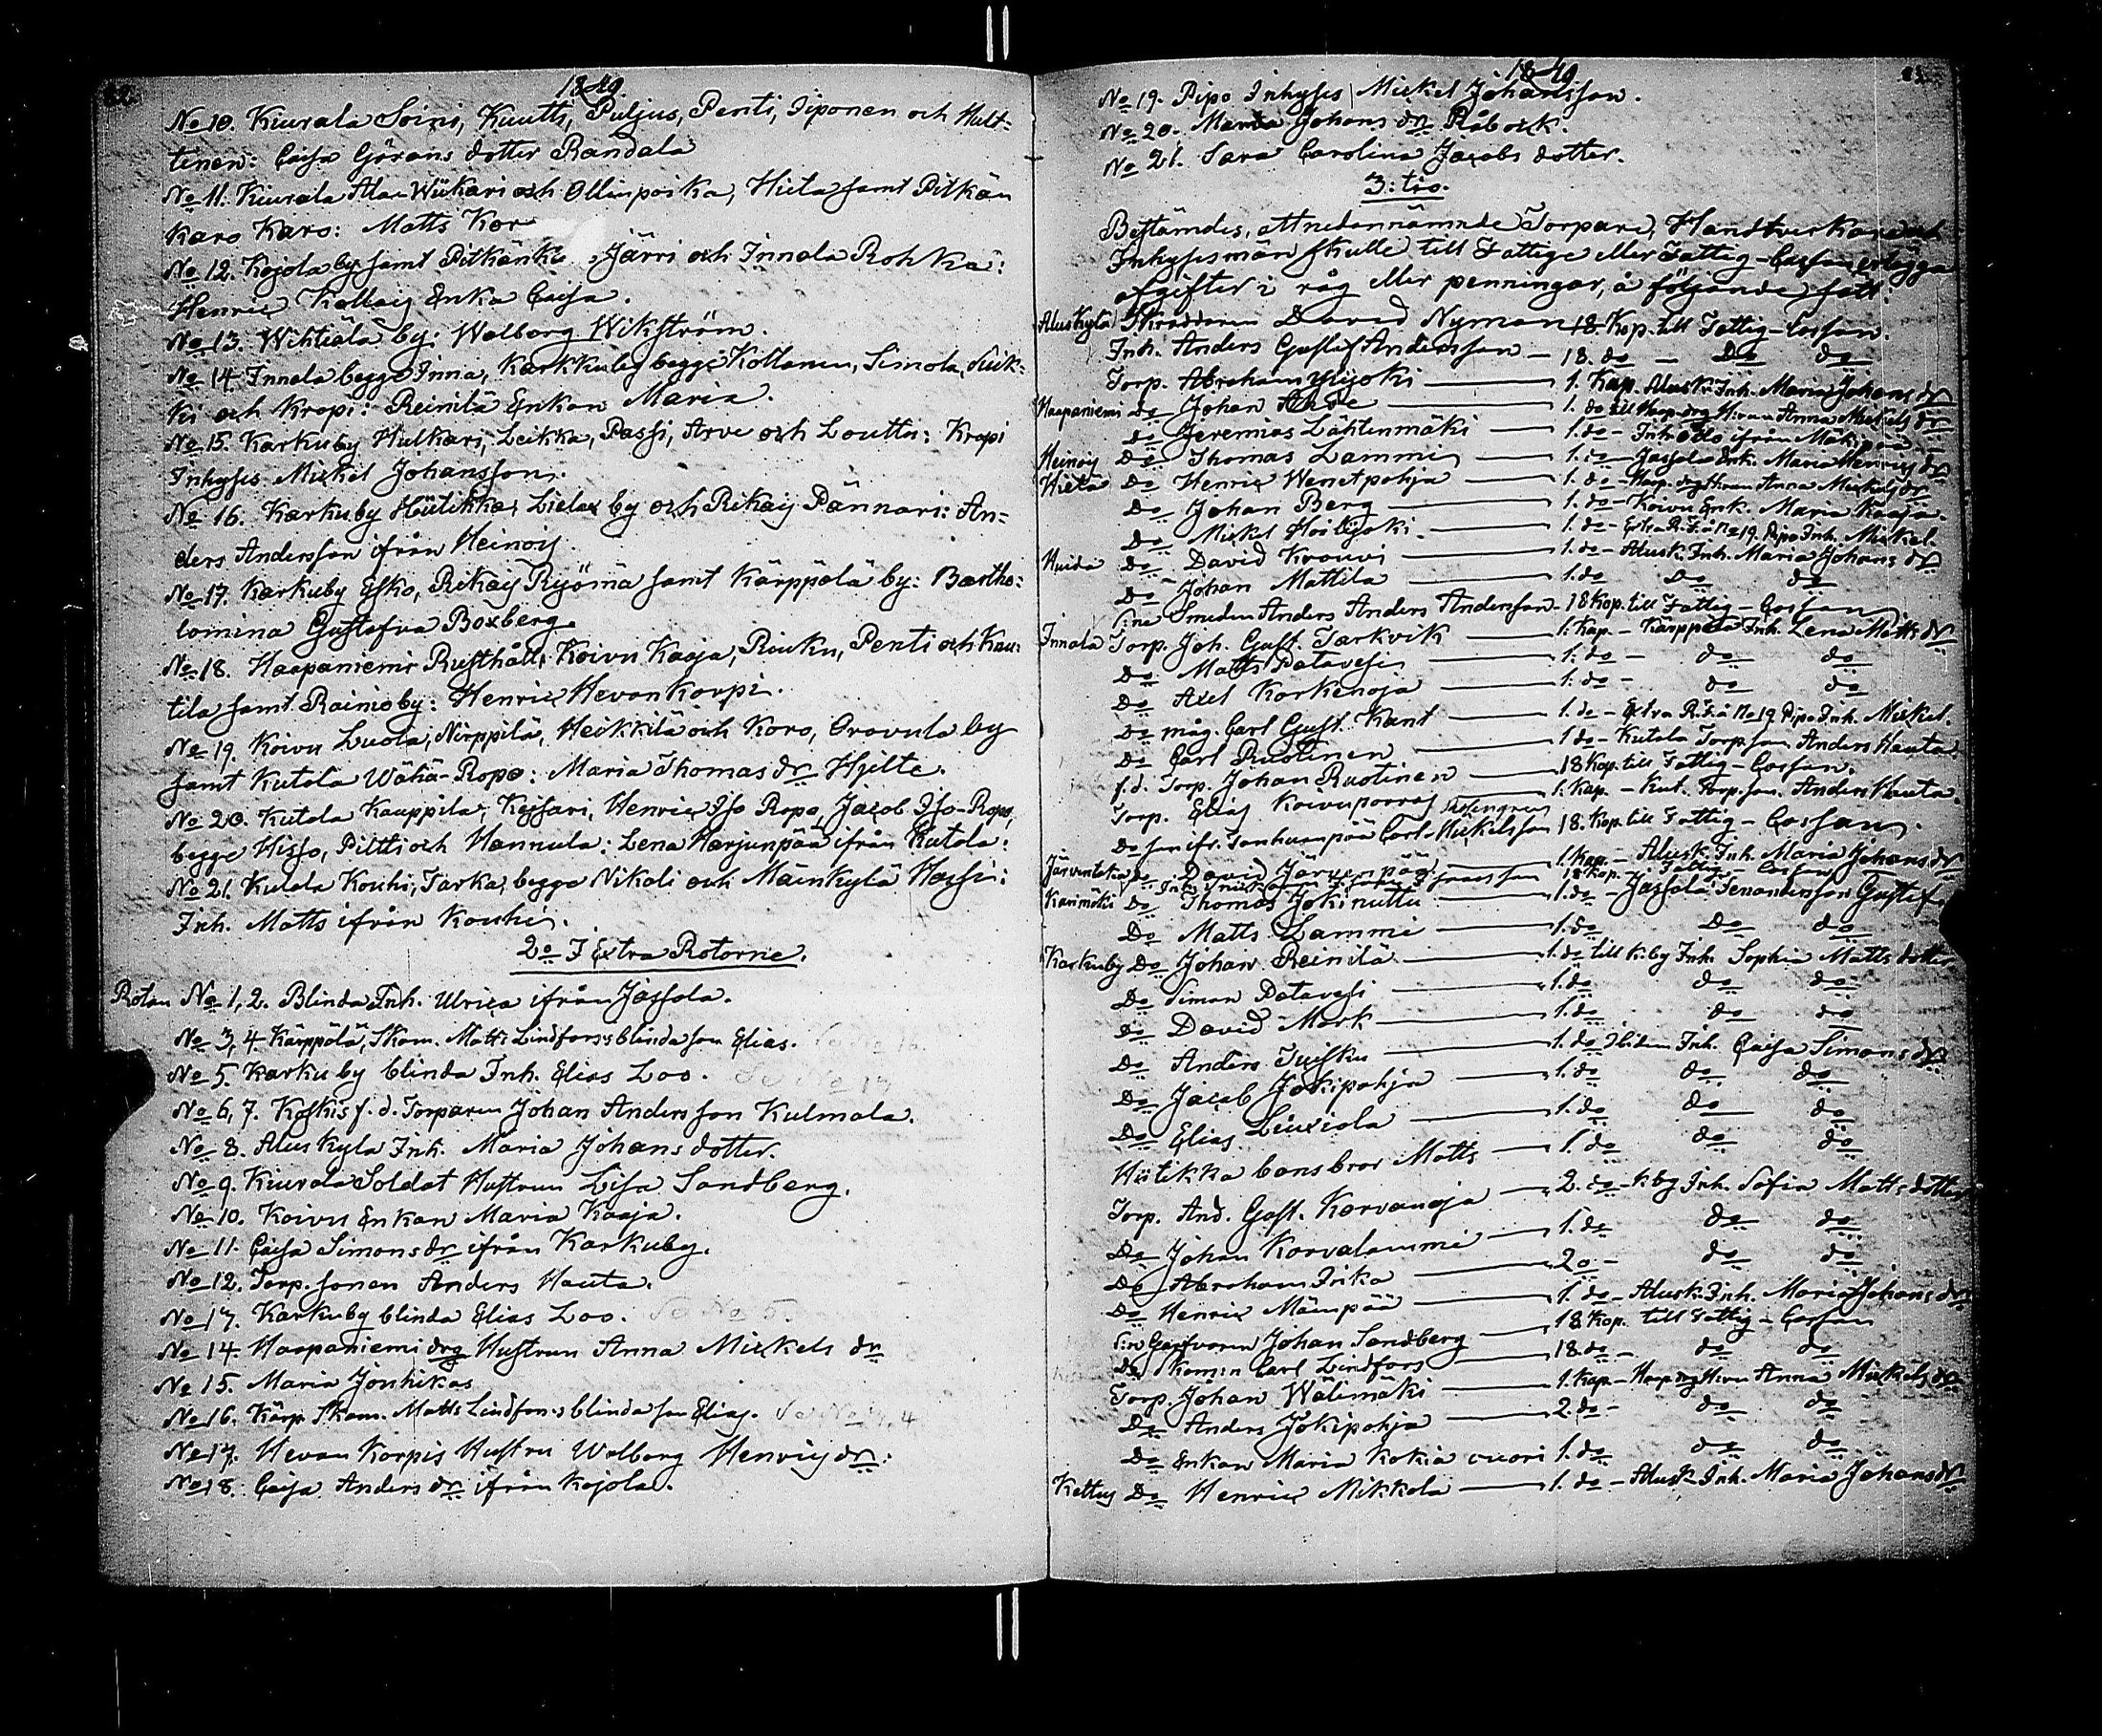 1849.
No 10. Kiurala Soini, Kuutti, Puljus, Penti, Siponen och Hult-
tenen: Caisa Görans dotter Randala
No 11. Kiurala Ala Wiikari och Ollinpoika, Hieta samt Pitkän
Karo Karo: Matts Kor
No 12. Kojola by samt Pitkänk Järri och Innala Rohka:
Henric Kallaij Enka Caisa.
No 13. Wihtiälä by: Walborg Wikström.
No 14. Innala begge Inna, Karkkuby begge Kottanen, Simola, Kuk-
ki och Kropi: Reinilä Enkan Maria.
No 15. Karkuby Hulkari, Leikka, Passi, Arve och Louttu: Kropi
Inhyses Mickel Johansson.
No 16. Karkuby Hiitikka, Liela by och Rikaij Pännari: An-
ders Andersson ifrån Heinoij
No 17. Karkuby Esko, Rikaij Ryömä samt Kärppälä by: Bartho-
lomina Gustafva Boxberg.
No 18. Haapaniemi Rusthåll, Koivu Kaaja, Rouku, Penti och Kau-
tila samt Rainio by: Henric Hevonkorpi.
No 19. Koivu Luota, Nirppilä, Heikkilä och Koro, Oravula by
samt Kutala Wähä-Ropo: Maria Thomas dr Hjelte.
No 20. Kutala Kauppila, Keisari, Henric Iso Ropo, Jacob Iso-Ropo,
begge Hisso, Piltti och Hannula: Lena Harjunpää ifrån Kutala:
No 21. Kutala Kouhi, Tarka, begge Nikoli och Mäenkylä Hassi:
Inh. Matts ifrån Kouhi.
2o I Extra Rotorne.
Rotan No 1, 2. Blinda Inh. Ulrica ifrån Jassola.
No 3, 4 Kärppälä, Skom. Matts Lindforss blinda son Elias. Se No 16.
No 5. Karkuby blinda Inh. Elias Loo. Se No 17
No 6, 7. Koskis f. d. Torparen Johan Andersson Kulmala.
No 8. Aluskylä Inh. Maria Johans dotter.
No 9. Kiurala Soldat Hustrun Lisa Sandberg.
No 10. Koivu Enkan Maria Kaaja.
No 11. Caisa Simons dr ifrån Karkuby.
No 12. Torp. sonen Anders Hauta.
No 17. Karkuby blinda Elias Loo. Se No 5.
No 14. Haapaniemi drg Hustrun Anna Mickels dr
No 15. Maria Jouhikas
No 16. Kärp. Skom. Matts Lindfors's blinda son Elias. Se No 3, 4
No 17. Hevon Korpis Hustru Walborg Henrics dr:
No 18. Caisa Anders dr ifrån Kojola.
1849.
No 19. Pipo Inhyses Mickel Johansson.
No 20. Maria Johans dr Råbock.
No 21. Sara Carolina Jacobs dotter.
3:tio.
Bestämdes, att nedannämnde Torpare, Handtverkare och
Inhysesmän skulle till Fattige eller Fattig-Cassan erlägga
afgifter i råg eller penningar, å följande sätt:
Aluskylä Skräddaren David Nyman 18. Kop. till Fattig-Cassan.
Inh. Anders Gustaf Andersson — 18. do — Do do
Torp. Abraham Ylijoki — 1. Kap. Alusk. Inh. Maria Johans dr
Haapaniemi do Johan Ahde — 1. do till Haap. drg H:run Anna Mickels dr
do Jeremias Lähtenmäki — 1. do — Inh. Otto ifrån Mäkipää
Heinoij Do Thomas Lammi — 1. do — Jassola Enk. Maria Henrics dr
Hieta Do Henric Wenetpohja — 1. do — Haap. drg H:run Anna Mickels dr
Do Johan Berg — 1. do — Koivu Enk. Maria Kaaja.
Do Mickel Hoilijoki — 1. do — Extra R. Få No 19. Pipo Inh. Mickel.
Huida Do David Krouvi — 1. do — Alusk. Inh. Maria Johans dr
Do Johan Mattila — 1. do Do do
S:ne Smeden Anders Anders Andersson — 18 Kop. till Fattig-Cassan
Innala Torp. Joh. Gust. Tarkvik — 1. Kap. — Kärppälä Inh. Lena Matts dr
Do Matts Patavesi — 1. do — do do
Do Axel Korkenoja — 1. do — do do
Do måg. Carl Gust. Kant — 1. do — Extra R. Få No 19. Pipo Inh. Mickel.
Do Carl Ruotinen — 1 do — Kutala Torp. son Anders Hauta
f. d. Torp. Johan Ruotinen — 18 Kop. till Fattig-Cassan.
Torp. Elias Koivuporras — 1. Kap. — Kut. Torp. son. Anders Hauta.
Do son ifr. Tanhuanpää Carl Mickelsson 18. Kop. till Fattig-Cassan.
Järventaka do David Järvenpää — 1. Kap. — Alusk. Inh. Maria Johans dr
18 Kop. — Fattig-Cassan
Karimäki Do Thomas Jokinuttu — 1. do — Jassola Gustaf
Do Matts Lammi — 1. do Do do
Karkuby Do Johan Reinilä — 1. do till K:by Inh. Sophia Matts dotter
Do Simon Patavesi — 1. do do do
Do David Mark — 1. do do do
Do Anders Tuisku — 1. do Ibidem Inh. Caisa Simons dr
Do Jacob Jokipohja — 1. do do do
Do Elias Liuxiala — 1. do do do
Hiitikka bonsbror Matts — 1. do do do
Torp. And. Gust. Karvanoja — 2. do — K:by Inh. Sofia Matts dotter
Do Johan Korvalammi — 1. do do do
Do Abraham Inka — 2 o — do do
Do Henric Mämpää — 1. do — Alusk. Inh. Maria Johans dr
S:n Garfvaren Johan Sandberg — 18 Kop. till Fattig-Cassan
Do Skom:n Carl Lindfors — 18. do — do do
Torp. Johan Wälimäki — 1. Kap — Haap drg H:ru Anna Mickels dr
Do Anders Jokipohja — 2. do — do do
Do Enkan Maria Kokiavuori 1. do do do
Kettuij Do Henric Mikkola — 1. do — Alusk Inh. Maria Johans dr